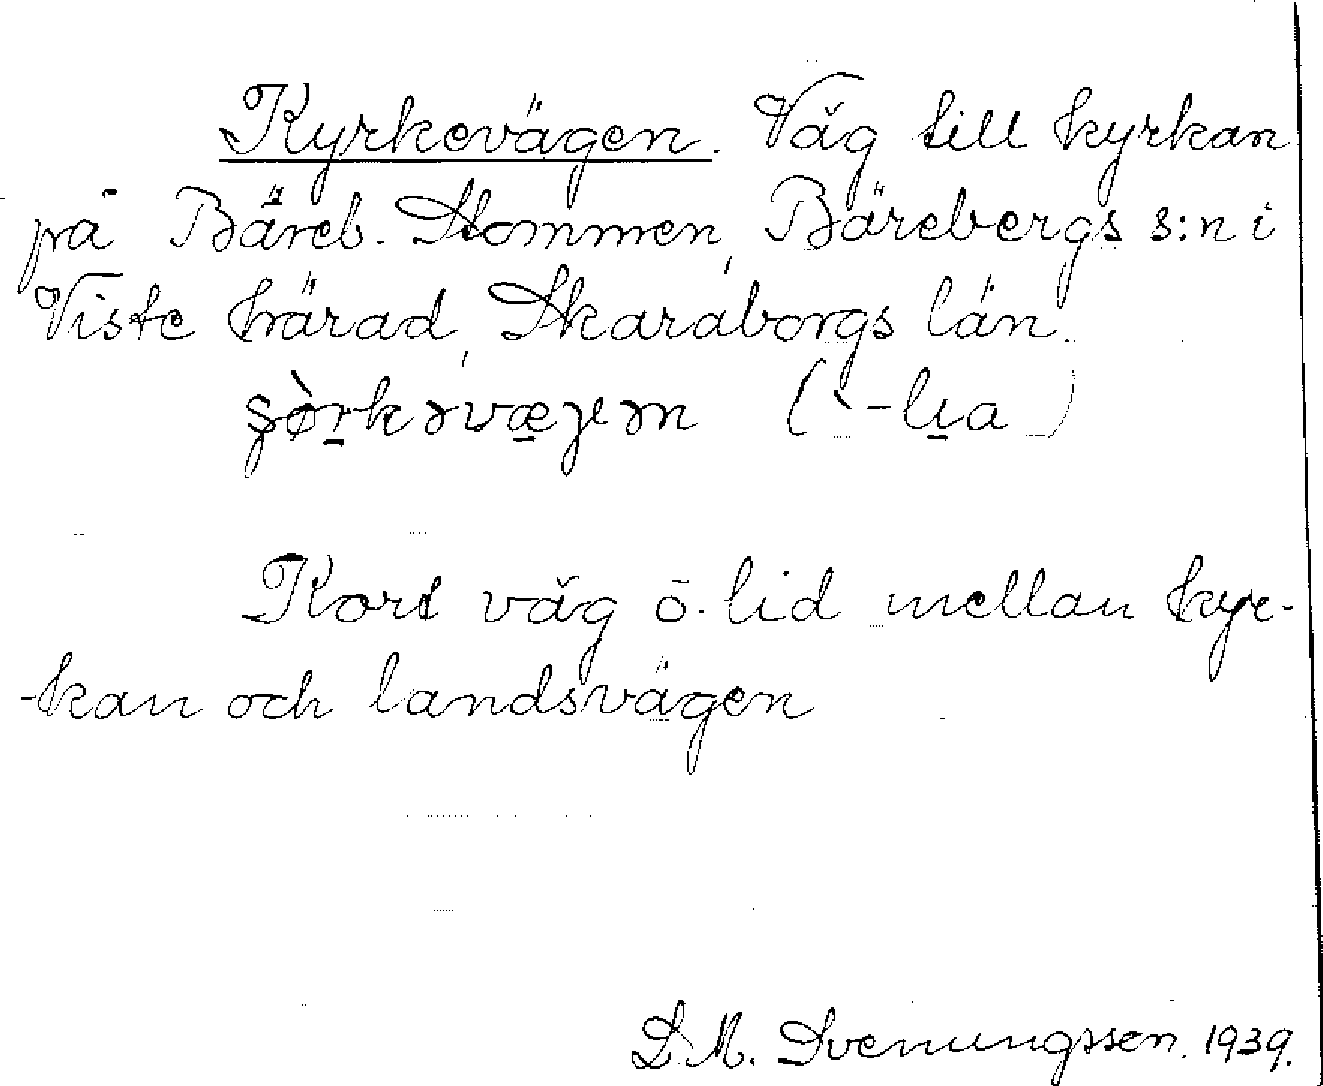 Kyrkevägen. Väg till kyrkan
på Bäreb. Stommen, Bärebergs s:n i
Viste härad, Skaraborgs län.
Kort väg o. lid mellan kyr-
-kan och landsvägen
S. M. Svenungssen. 1939.